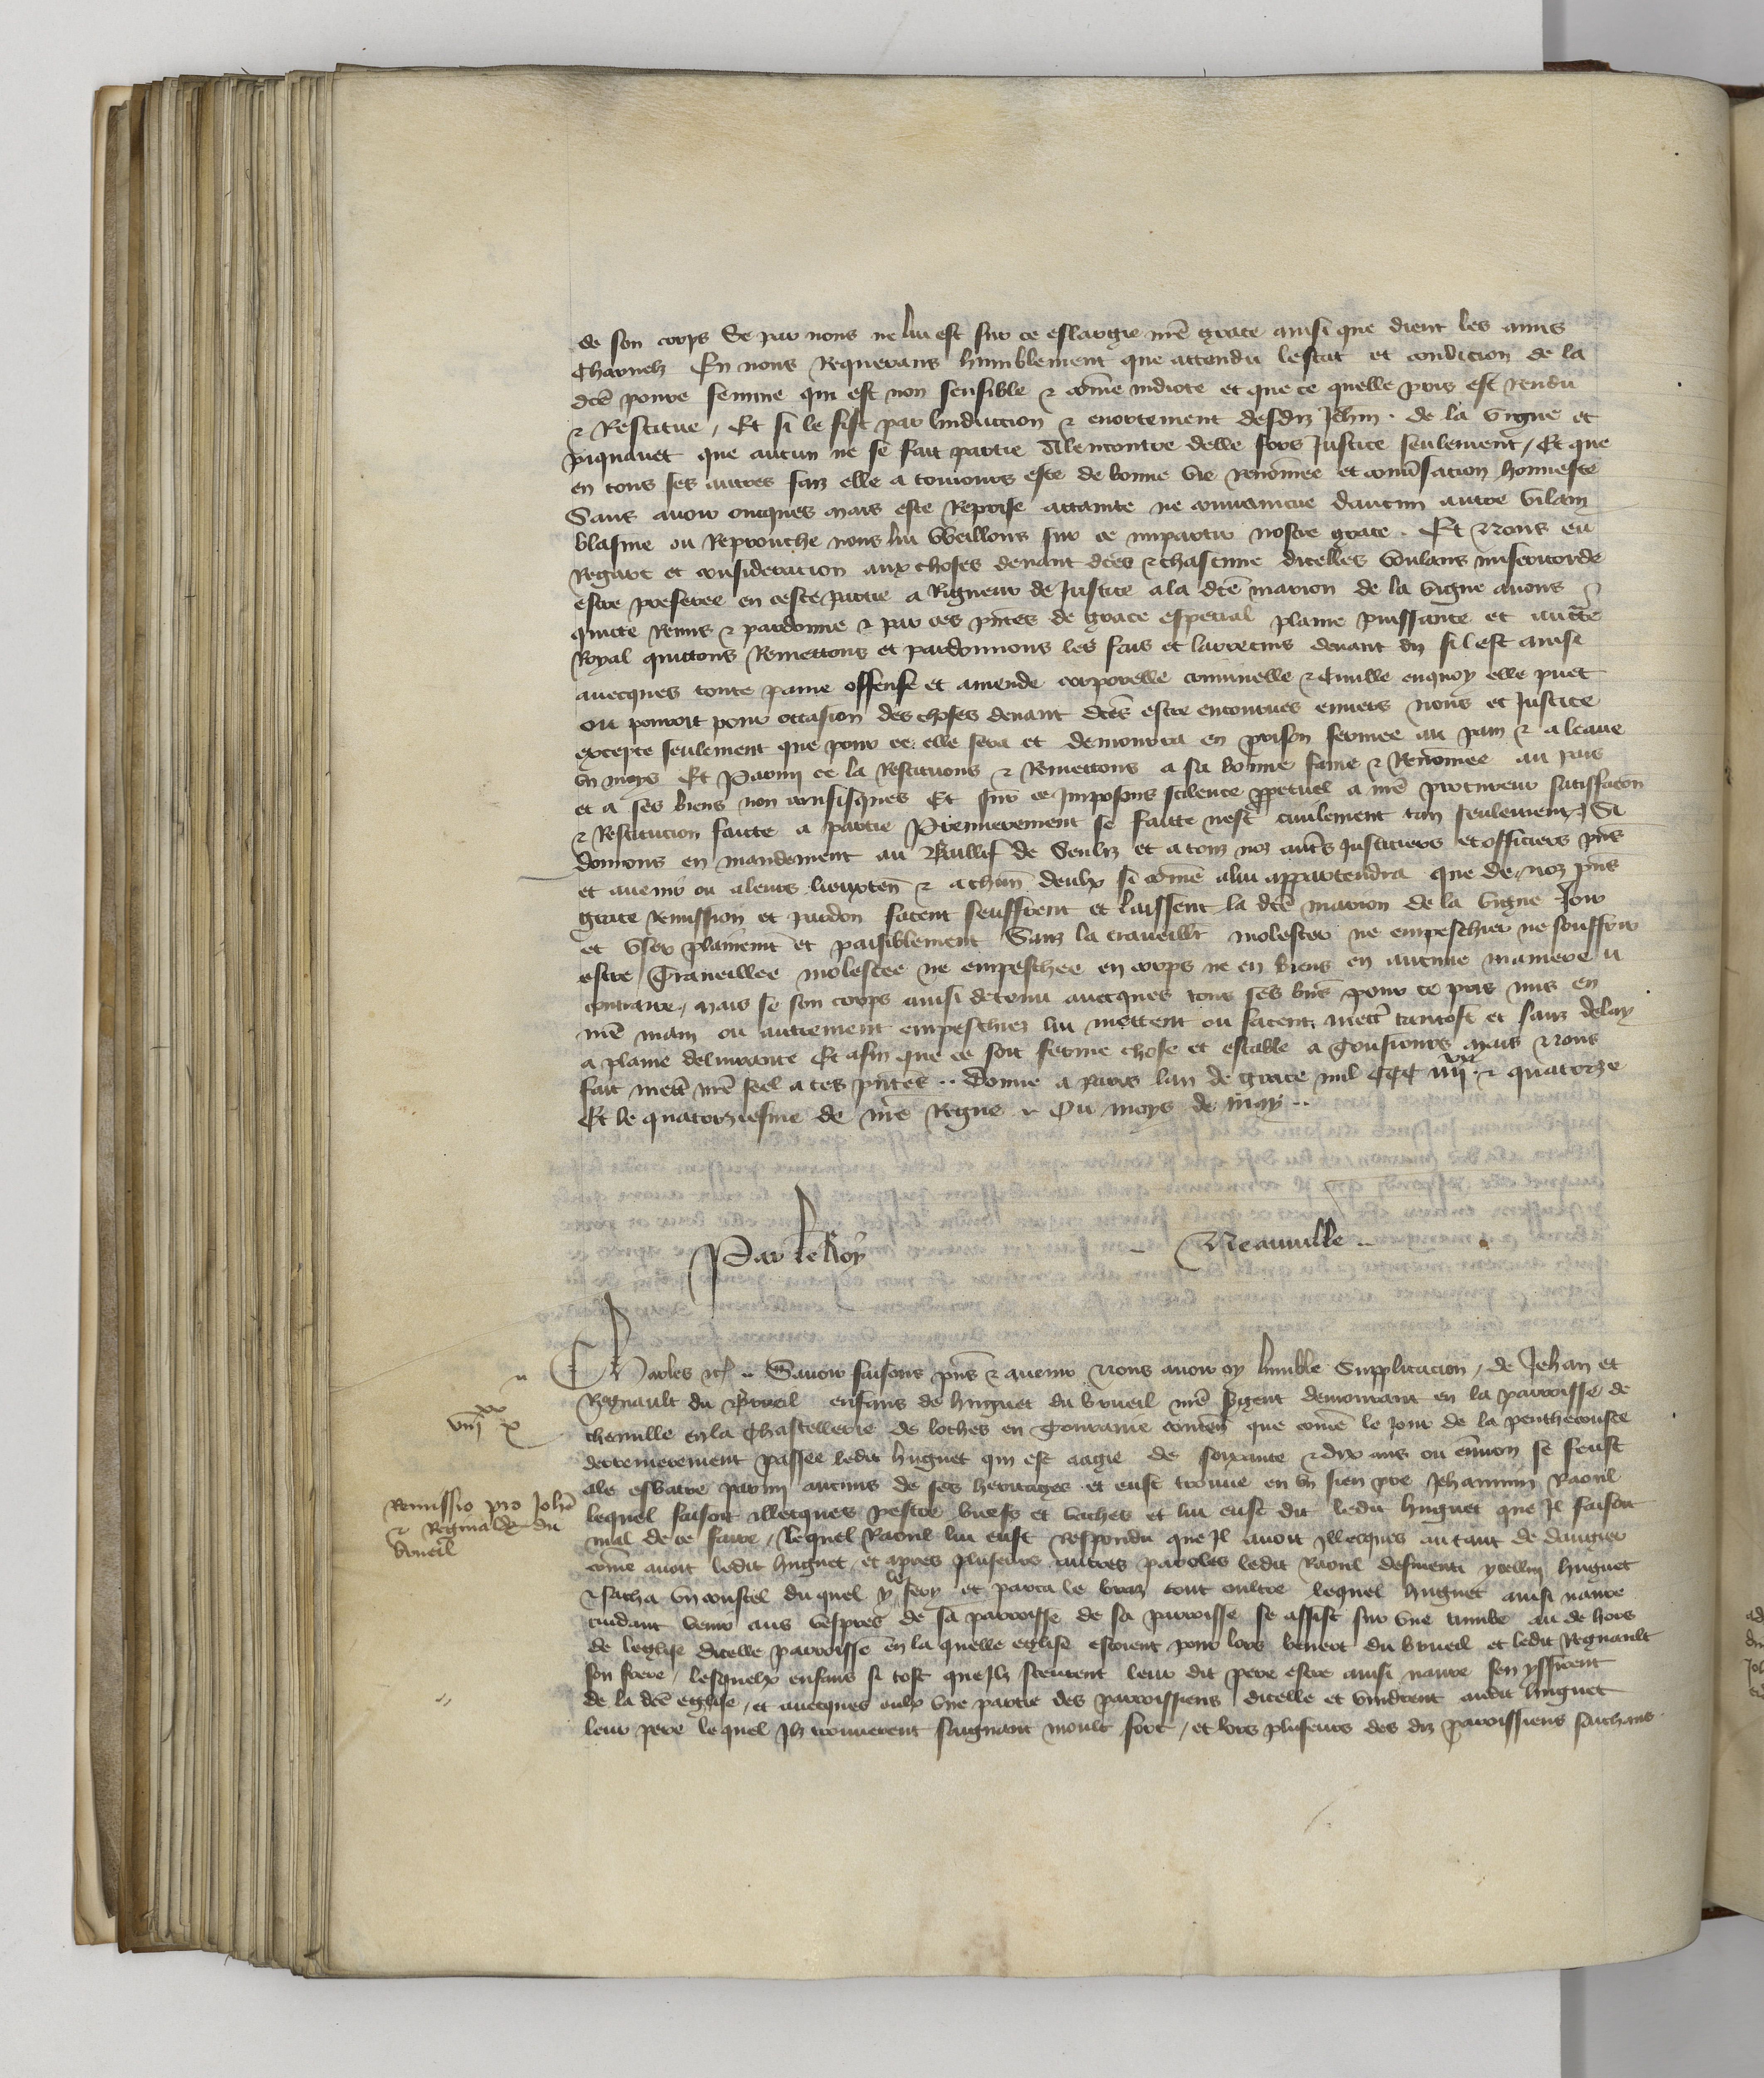 de son corps Se par nous ne lui est sur ce eslargie nr̃e grace ainsi que dient les amis
Charnelz En nous Requerans humblement que attendu lestat et condicion de la
dc̃e poure femme qui est non sensible & com̃e indiote et que ce quelle prist est rendu
& Restitue / Et si le fist par linduccion & enortement desdiz Jehan de la vigne et
piquauet que aucun ne se fait partie Alencontre delle fors Justice seulement / Et que
en tous ses autres faiz elle a touiours este de bonne vie renom̃ee et conu̾sacion honneste
Sans auoir oncques mais este Reprise attainte ne conuaincue daucun autre vilain
blasme ou Reprouche nous lui vueillons sur ce impartir nostre grace . Et Nous eu
Regart et consideracion aux choses deuant dc̃es & chascune dicelles voulans misericorde
estre preferee en ceste partie a Rigueur de Justice a la dc̃e marion de la vigne auons
quicte Remis & pardonne & par ces pñtes de grace especial plaine puissance et auctẽ
Royal quittons Remettons et pardonnons les fais et larrecins deuant diz sil est ainsi
auecques toute paine offense et amende corporelle criminelle & Ciuille enquoy elle puet
ou pourroit pour occasion des choses deuant dc̃es estre encourues enuers nous et Justice
excepte seulement que pour ce elle sera et demourra en prison fermee au pain & a leaue
vn moys Et Parmi ce la Restituons & Remettons a sa bonne fame & Renom̃ee au pais
et a ses biens non confisques Et sur ce Imposons scilence ppetuel a nr̃e procureur satisfacõn
& Restitucion faicte a partie Premierement se faicte nest ciuilement tan seulement / Si
donnons en mandement au Baillif de Senliz et a touz noz autr̃s Justiciers et officiers pñs
et auenir ou aleurs lieuxten̄ & achun̄ deulx si com̃e alui appartendra que de noz pñs
grace remission et pardon facent seuffrent et laissent la dc̃e marion de la vigne Joir
et vser plainemẽt et paisiblement Sanz la traueillr̃ molester ne empeschier ne souffrir
estre Traueillee molestee ne empeschee en corps ne en biens en aucune maniere au
contraire / mais se son corps ainsi detenu auecques tous ses bñs pour ce pris mis en
nr̃e main ou autrement empeschiez lui mettent ou facent mectr̃ tantost et sanz delay
a plaine deliurance Et afin que ce soit ferme chose et estable a tousiours mais Nous
fait mectr̃ nr̃e seel a ces pñtes .. Donne a Paris lan de grace mil CCC iiii xx & quatorze
Et le quatorziesme de nr̃e Regne & Ou moys de may ..
Par le Roy
Neauuille ..
Charles &c .. Sauoir faisons pñs & auenir Nous auoir oy lumble Supplicacion / de Jehan et
Regnault du Brueil enfans de huguet du brueil nr̃e sʼgent demourant en la parroisse de
chemille en la Chastellerie de loches en Touraine conten̄ que com̃e le Jour de la penthecouste
derrenierement passee ledit huguet qui est aagie de soixante & dix ans ou en̄uiron se feust
ale esbatre parmi aucuns de ses heritages et eust trouue en vn sien pre Jehannin Raoul
lequel faisoit illecques pestre buefs et vaches et lui eust dit ledit huguet que Il faisoit
mal de ce faire / lequel Raoul lui eust respondu que Il auoit Illecques autant de dangier
com̃e auoit ledit huguet et apres pluseurs autres paroles ledit Raoul desmenti ycellui huguet
& sacha vn coustel du quel y le fery et parca le braz tout oultre lequel huguet ainsi naure
cuidant venir aus vespres de sa parroisse de sa parroisse se assist sur vne tumbe au dehors
de leglise dicelle parroisse en la quelle eglise estoient pour lors benoit du brueil et ledit Regnault
son frere / lesquelx enfans si tost que Ilz sceurent leur dit pere estre ainsi naure sen yssirent
de la dc̃e eglise / et auecques eulx vne partie des parroissiens dicelle et vindrent audit huguet
leur pere lequel Ilz trouuerent saignant moult fort / et lors pluseurs des diz parroissiens sachans
viii xx x
Remissio pro Johẽ
& Reginald̃ du
brueil